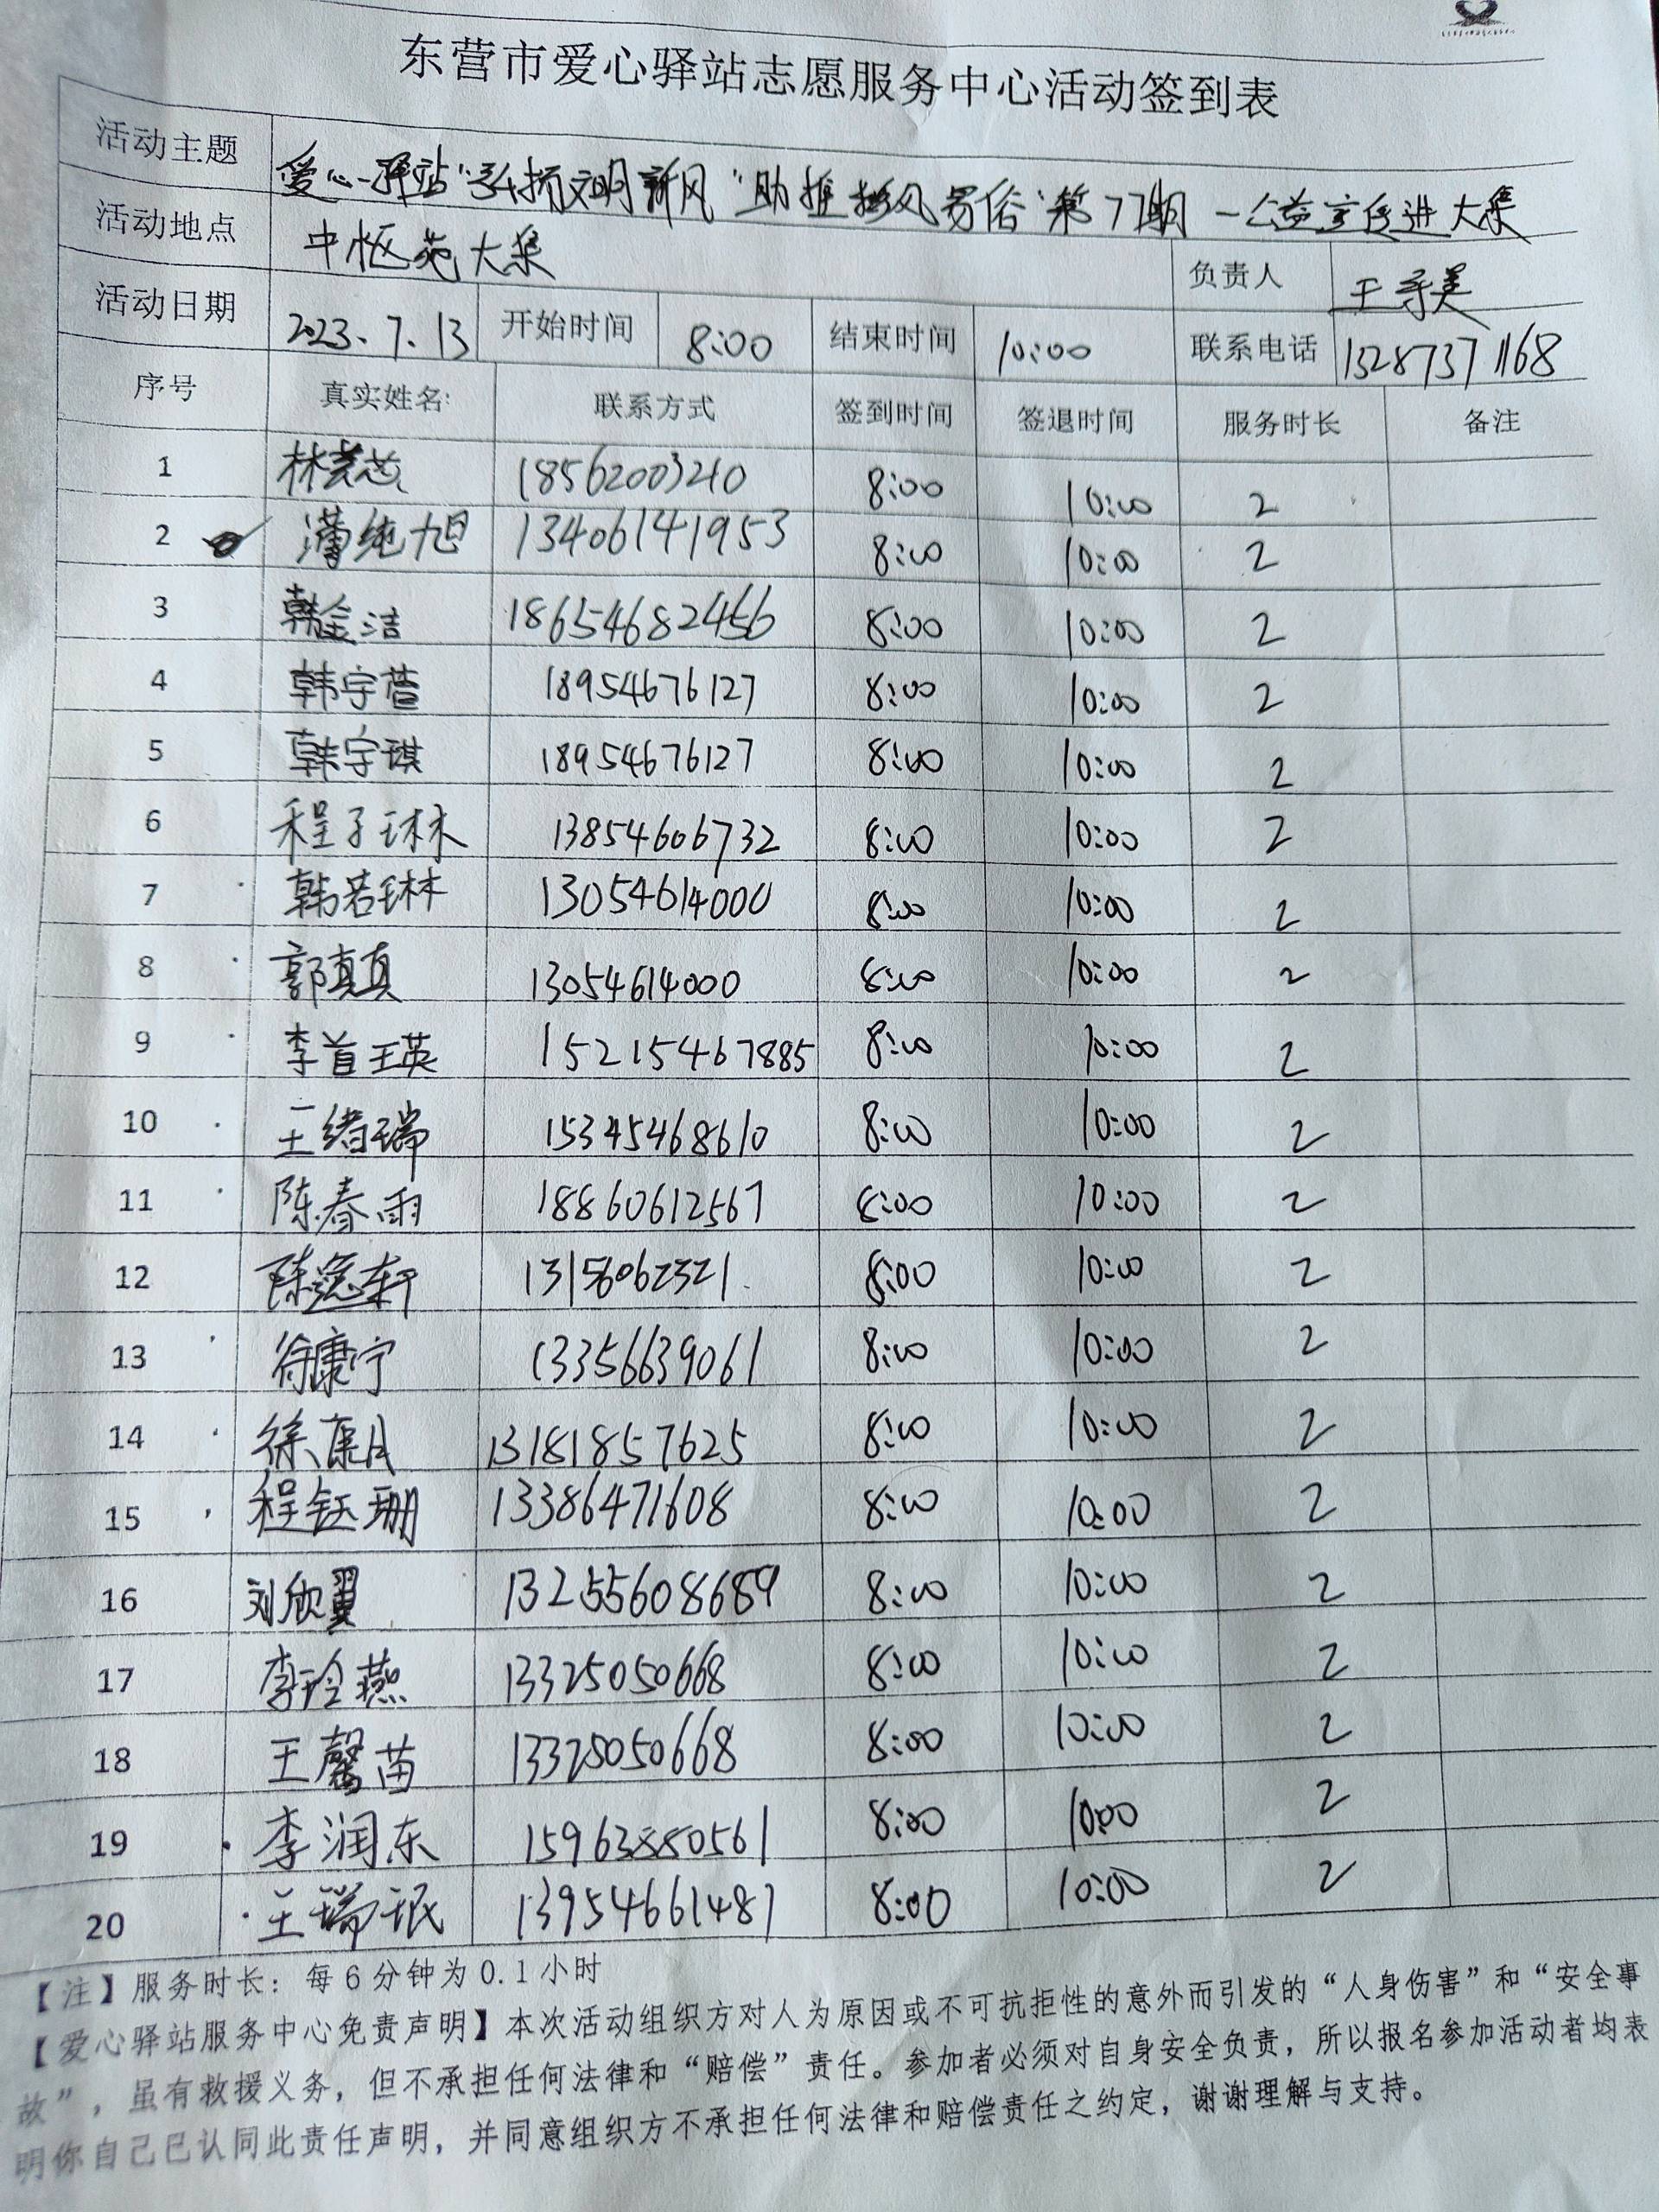 东营市爱心驿站志愿服务中心活动签到表
活动主题 爱心驿站"弘扬文明新风"助推移风易俗"第77期—公益宣传进大集
活动地点 中枢苑大集 负责人 王寻美
活动日期 2023.7.13 开始时间 8:00 结束时间 10:00 联系电话 13287371168
序号 真实姓名: 联系方式 签到时间 签退时间 服务时长 备注
1 18562003210 8:00 10:00 2
2 薄纯旭 13406141953 8:00 10:00 2
3 韩金洁 18654682456 8:00 10:00 2
4 韩宇萱 18954676127 8:00 10:00 2
5 韩宇琪 18954676127 8:00 10:00 2
6 程子琳 13854606732 8:00 10:00 2
7 韩若琳 13054614000 8:00 10:00 2
8 郭真真 13054614000 8:00 10:00 2
9 李首英 15215467885 8:00 10:00 2
10 王绪瑞 15345468610 8:00 10:00 2
11 陈春雨 18860612567 8:00 10:00 2
12 13156062321 8:00 10:00 2
13 徐康宁 13356639061 8:00 10:00 2
14 徐康月 13181857625 8:00 10:00 2
15 程钰珊 13386471608 8:00 10:00 2
16 刘欣翼 8:00 10:00 2
17 李玲燕 13325050668 8:00 10:00 2
18 王馨苗 13325050668 8:00 10:00 2
19 李润东 15963880561 8:00 10:00 2
20 王瑞珉 13954661487 8:00 10:00 2
【注】服务时长：每6分钟为0.1小时
【爱心驿站服务中心免责声明】本次活动组织方对人为原因或不可抗拒性的意外而引发的“人身伤害”和“安全事
故”，虽有救援义务，但不承担任何法律和“赔偿”责任。参加者必须对自身安全负责，所以报名参加活动者均表
明你自己已认同此责任声明，并同意组织方不承担任何法律和赔偿责任之约定，谢谢理解与支持。